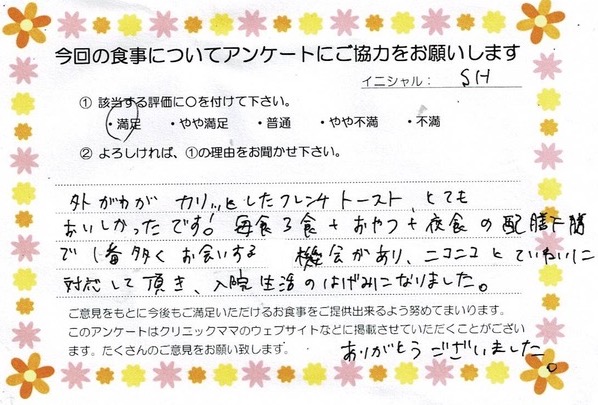 今回の食事についてアンケートにご協力をお願いします
イニシャル： SH
① 該当する評価に〇を付けて下さい。
・満足 ・やや満足 ・普通 ・やや不満 ・不満
② よろしければ、①の理由をお聞かせ下さい。
外がわが カリッとしたフレンチトースト、とても
おいしかったです！ 毎食3食+おやつ+夜食の配膳下膳
で1番多くお会いする 機会があり、ニコニコとていねいに
対応して頂き、入院生活のはげみになりました。
ご意見をもとに今後もご満足いただけるお食事をご提供出来るよう努めてまいります。
このアンケートはクリニックママのウェブサイトなどに掲載させていただくことがござい
ます。たくさんのご意見をお願い致します。
ありがとうございました。